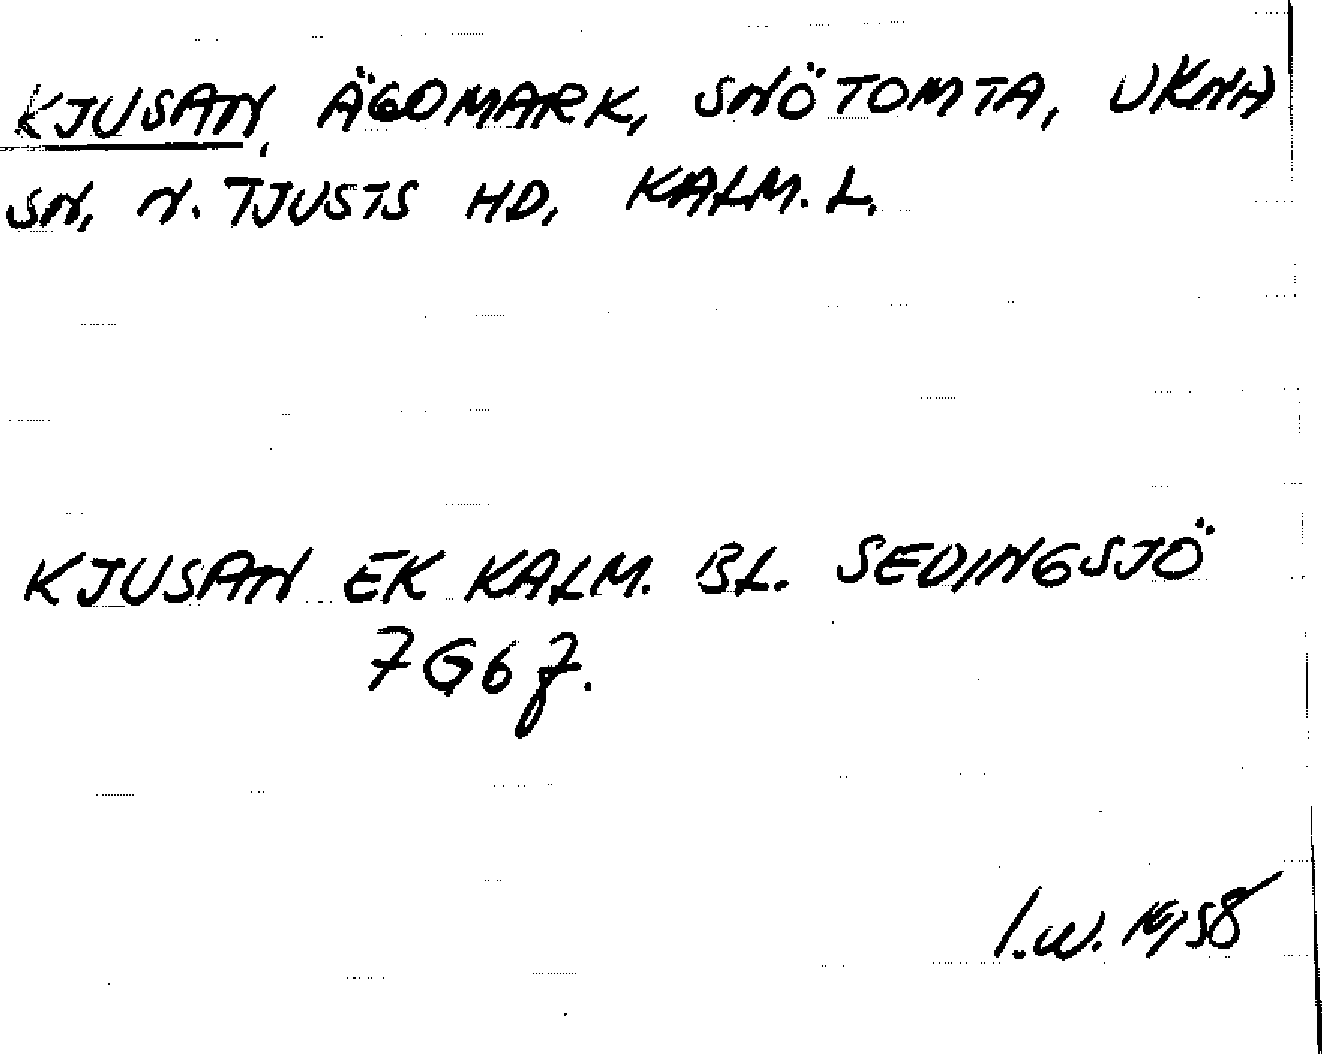 KJUSAN, ÄGOMARK, SNÖTOMTA, UKNA
SN, N. TJUSTS HD, KALM. L.
KJUSAN EK KALM. BL. SEDINGSJÖ
7G6f.
I.W. 1958